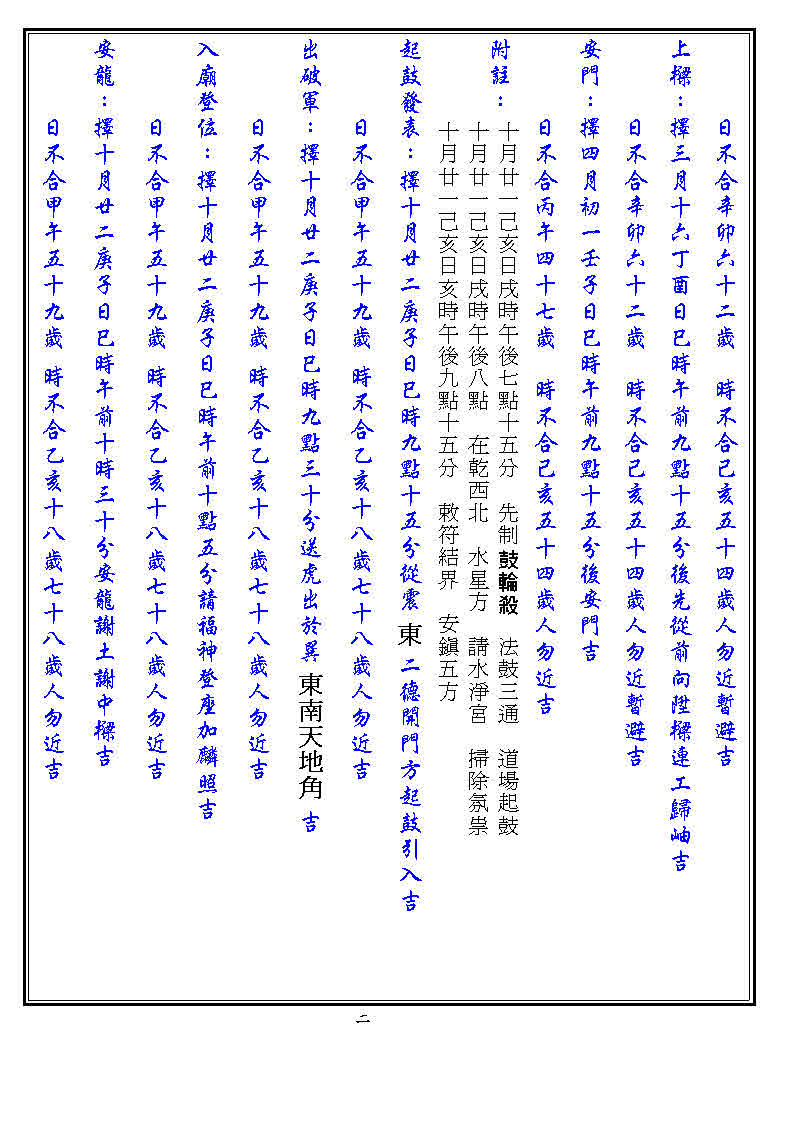 日不合辛卯六十二歲　時不合己亥五十四歲人勿近暫避吉
上樑：擇三月十六丁酉日巳時午前九點十五分後先從前向陞樑連工歸岫吉
日不合辛卯六十二歲　時不合己亥五十四歲人勿近暫避吉
安門：擇四月初一壬子日巳時午前九點十五分後安門吉
日不合丙午四十七歲　時不合己亥五十四歲人勿近吉
附註：
十月廿一己亥日戌時午後七點十五分　先制鼓輪殺　法鼓三通　道場起鼓
十月廿一己亥日戌時午後八點　在乾西北　水星方　請水淨宮　掃除氛祟
十月廿一己亥日亥時午後九點十五分　敕符結界　安鎮五方
起鼓發表：擇十月廿二庚子日巳時九點十五分從震東二德開門方起鼓引入吉
日不合甲午五十九歲　時不合乙亥十八歲七十八歲人勿近吉
出破軍：擇十月廿二庚子日巳時九點三十分送虎出於巽東南天地角吉
日不合甲午五十九歲　時不合乙亥十八歲七十八歲人勿近吉
入廟登位：擇十月廿二庚子日巳時午前十點五分請福神登座加麟照吉
日不合甲午五十九歲　時不合乙亥十八歲七十八歲人勿近吉
安龍：擇十月廿二庚子日巳時午前十時三十分安龍謝土謝中樑吉
日不合甲午五十九歲　時不合乙亥十八歲七十八歲人勿近吉
二